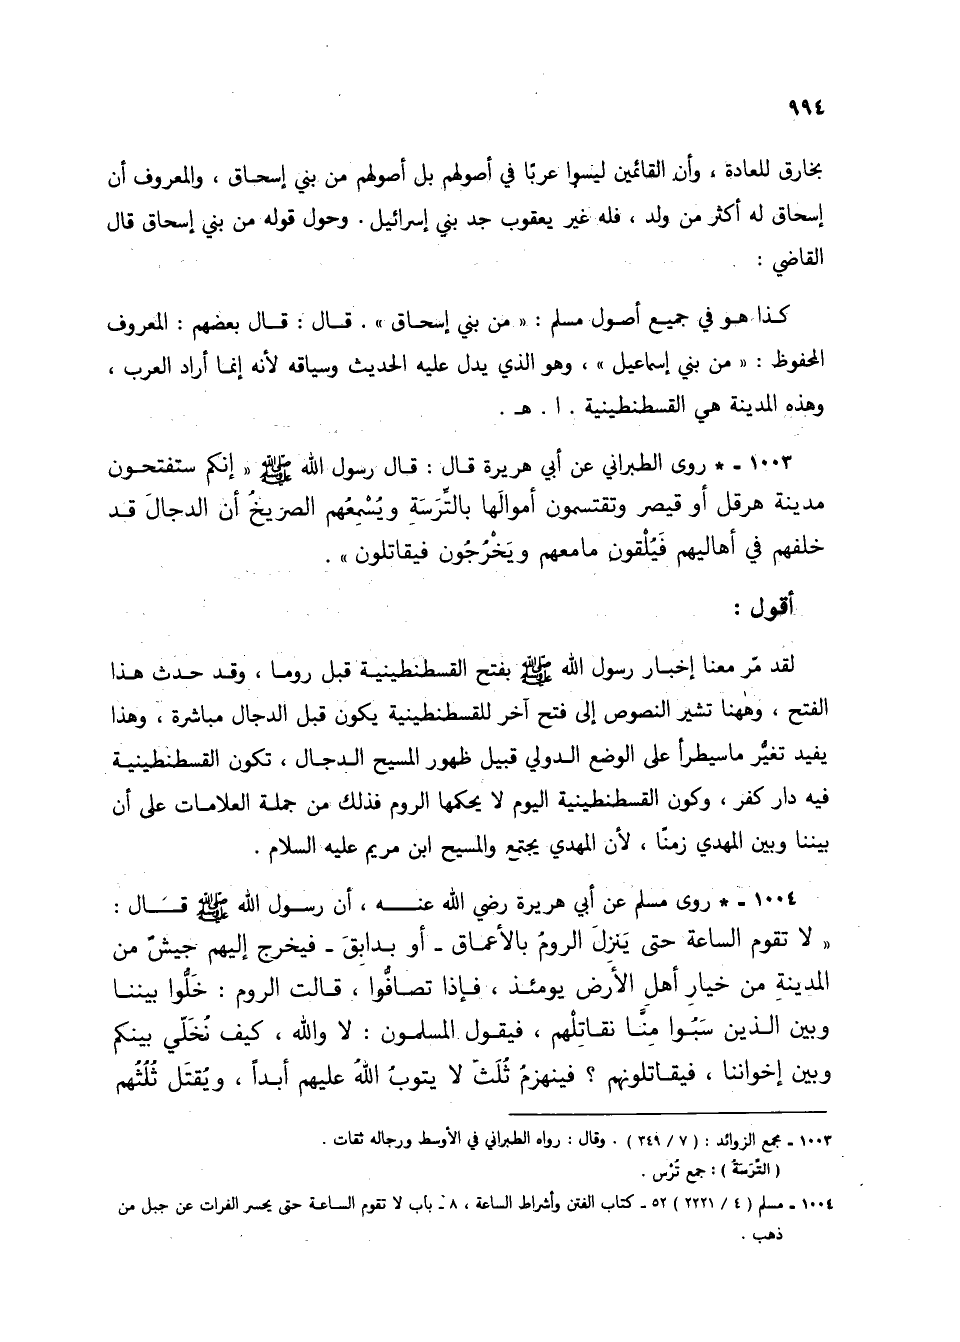 ٩٩٤
بخارق للعادة ، وأن القائمين ليسوا عربًا في أصولهم بل أصولهم من بني إسحاق ، والمعروف أن
إسحاق له أكثر من ولد ، فله غير يعقوب جد بني إسرائيل . وحول قوله من بني إسحاق قال
القاضي :
كذا هو في جميع أصول مسلم : « من بني إسحاق » . قال : قال بعضهم : المعروف
المحفوظ : « من بني إسماعيل » ، وهو الذي يدل عليه الحديث وسياقه لأنه إنما أراد العرب ،
وهذه المدينة هي القسطنطينية . ا . هـ .
١٠٠٣ - * روى الطبراني عن أبي هريرة قال : قال رسول الله ﷺ « إنكم ستفتحون
مدينة هرقل أو قيصر وتقتسمون أموالَها بالتِّرَسَةِ ويُسْمِعُهم الصريخُ أن الدجالَ قد
خلفهم في أهاليهم فَيُلْقون مامعهم ويَخْرُجُون فيقاتلون » .
أقول :
لقد مرّ معنا إخبار رسول الله ﷺ بفتح القسطنطينية قبل روما ، وقد حدث هذا
الفتح ، وههنا تشير النصوص إلى فتح آخر للقسطنطينية يكون قبل الدجال مباشرة ، وهذا
يفيد تغيُّر ماسيطرأ على الوضع الدولي قبيل ظهور المسيح الدجال ، تكون القسطنطينية
فيه دار كفر ، وكون القسطنطينية اليوم لا يحكمها الروم فذلك من جملة العلامات على أن
بيننا وبين المهدي زمنًا ، لأن المهدي يجتمع والمسيح ابن مريم عليه السلام .
١٠٠٤ - * روى مسلم عن أبي هريرة رضي الله عنه ، أن رسول الله ﷺ قَال :
« لا تقوم الساعة حتى يَنزِلَ الرومُ بالأعماق - أو بدابقَ - فيخرج إليهم جيشٌ من
المدينةِ من خيار أهلِ الأرض يومئذ ، فإذا تصافُّوا ، قالت الروم : خَلُّوا بيننا
وبين الذين سَبُوا مِنَّا نقاتلْهم ، فيقول المسلمون : لا والله ، كيف نُخَلّي بينكم
وبين إخواننا ، فيقاتلونهم ؟ فينهزمُ ثُلَثٌ لا يتوبُ اللهُ عليهم أبداً ، ويُقتَل ثُلُثُهم
١٠٠٣ - مجمع الزوائد : ( ٧ / ٣٤٩ ) . وقال : رواه الطبراني في الأوسط ورجاله ثقات .
( التِّرَسَةُ ) : جمع تُرْس .
١٠٠٤ - مسلم ( ٤ / ٢٢٢١ ) ٥٢ - كتاب الفتن وأشراط الساعة ، ٨ - باب لا تقوم الساعة حتى يحسر الفرات عن جبل من
ذهب .